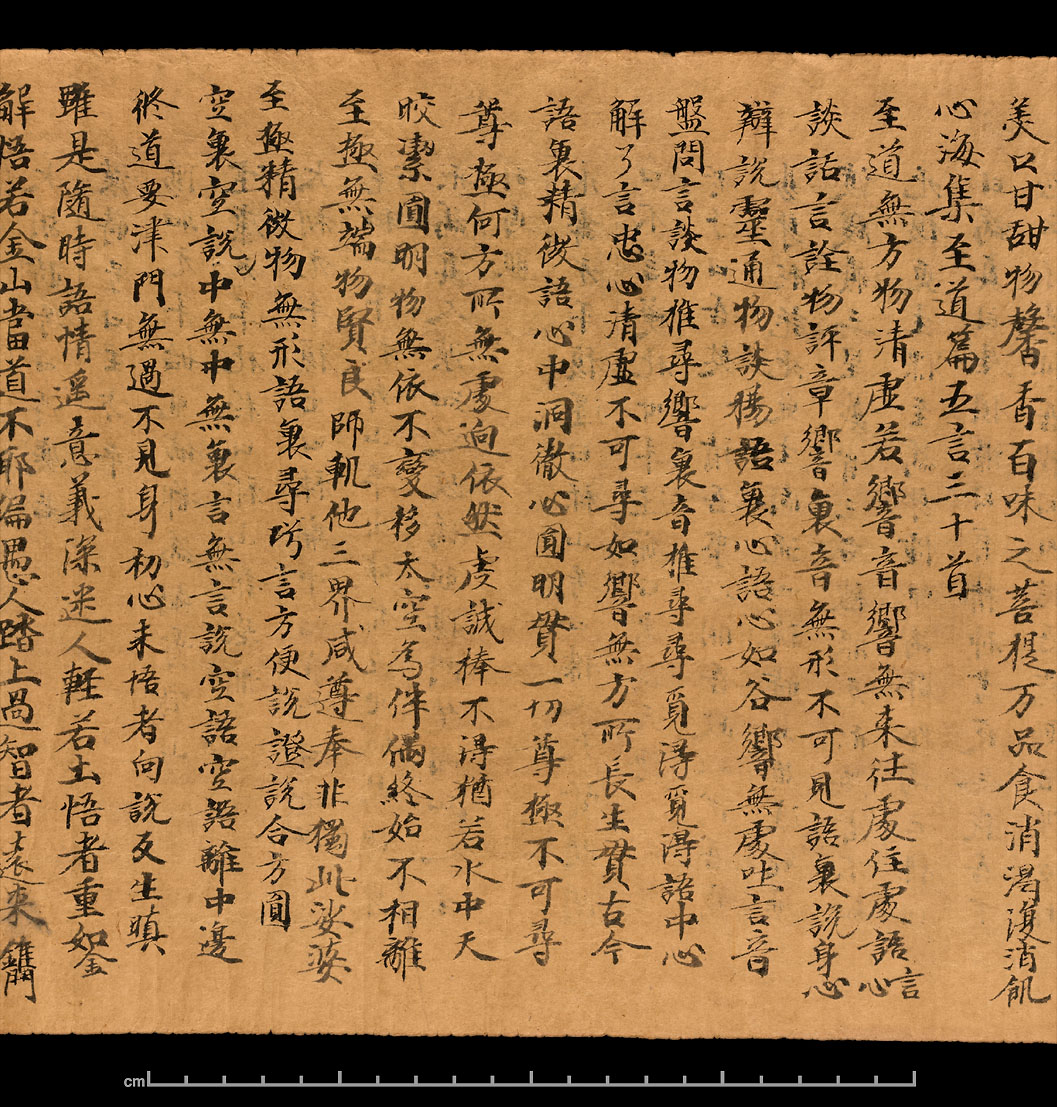 美口甘甜物馨香百味之菩提万品食消渴復消飢
心海集至道篇五言三十首
至道無方物清虛若響音音響無来往處住處語言心
談話言詮物評章響裏音無形不可見語裏說身心
辯說靈通物談揚語裏心語心如谷響無處吐言音
盤問言談物推尋響裏音推尋尋覓得覓得語中心
解了言忠心清虛不可尋如響無方所長生貫古今
語裏精微語心中洞徹心圓明貫一切尊極不可尋
尊極何方所無處迫依然虔誠棒不得猶若水中天
皎潔圓明物無依不變移太空為伴侶終始不相離
至極無端物賢良師軌他三界咸尊奉非獨此娑婆
至極精微物無形語裏尋巧言方便說證說合方圓
空裏空說中無中無裏言無言說空語空語離中邊
修道要津門無過不見身初心未悟者向說反生瞋
雖是隨時語情遥意義深迷人輕若土悟者重如金
解悟若金山當道不耶偏愚人踏上過智者遠来鐫
cm